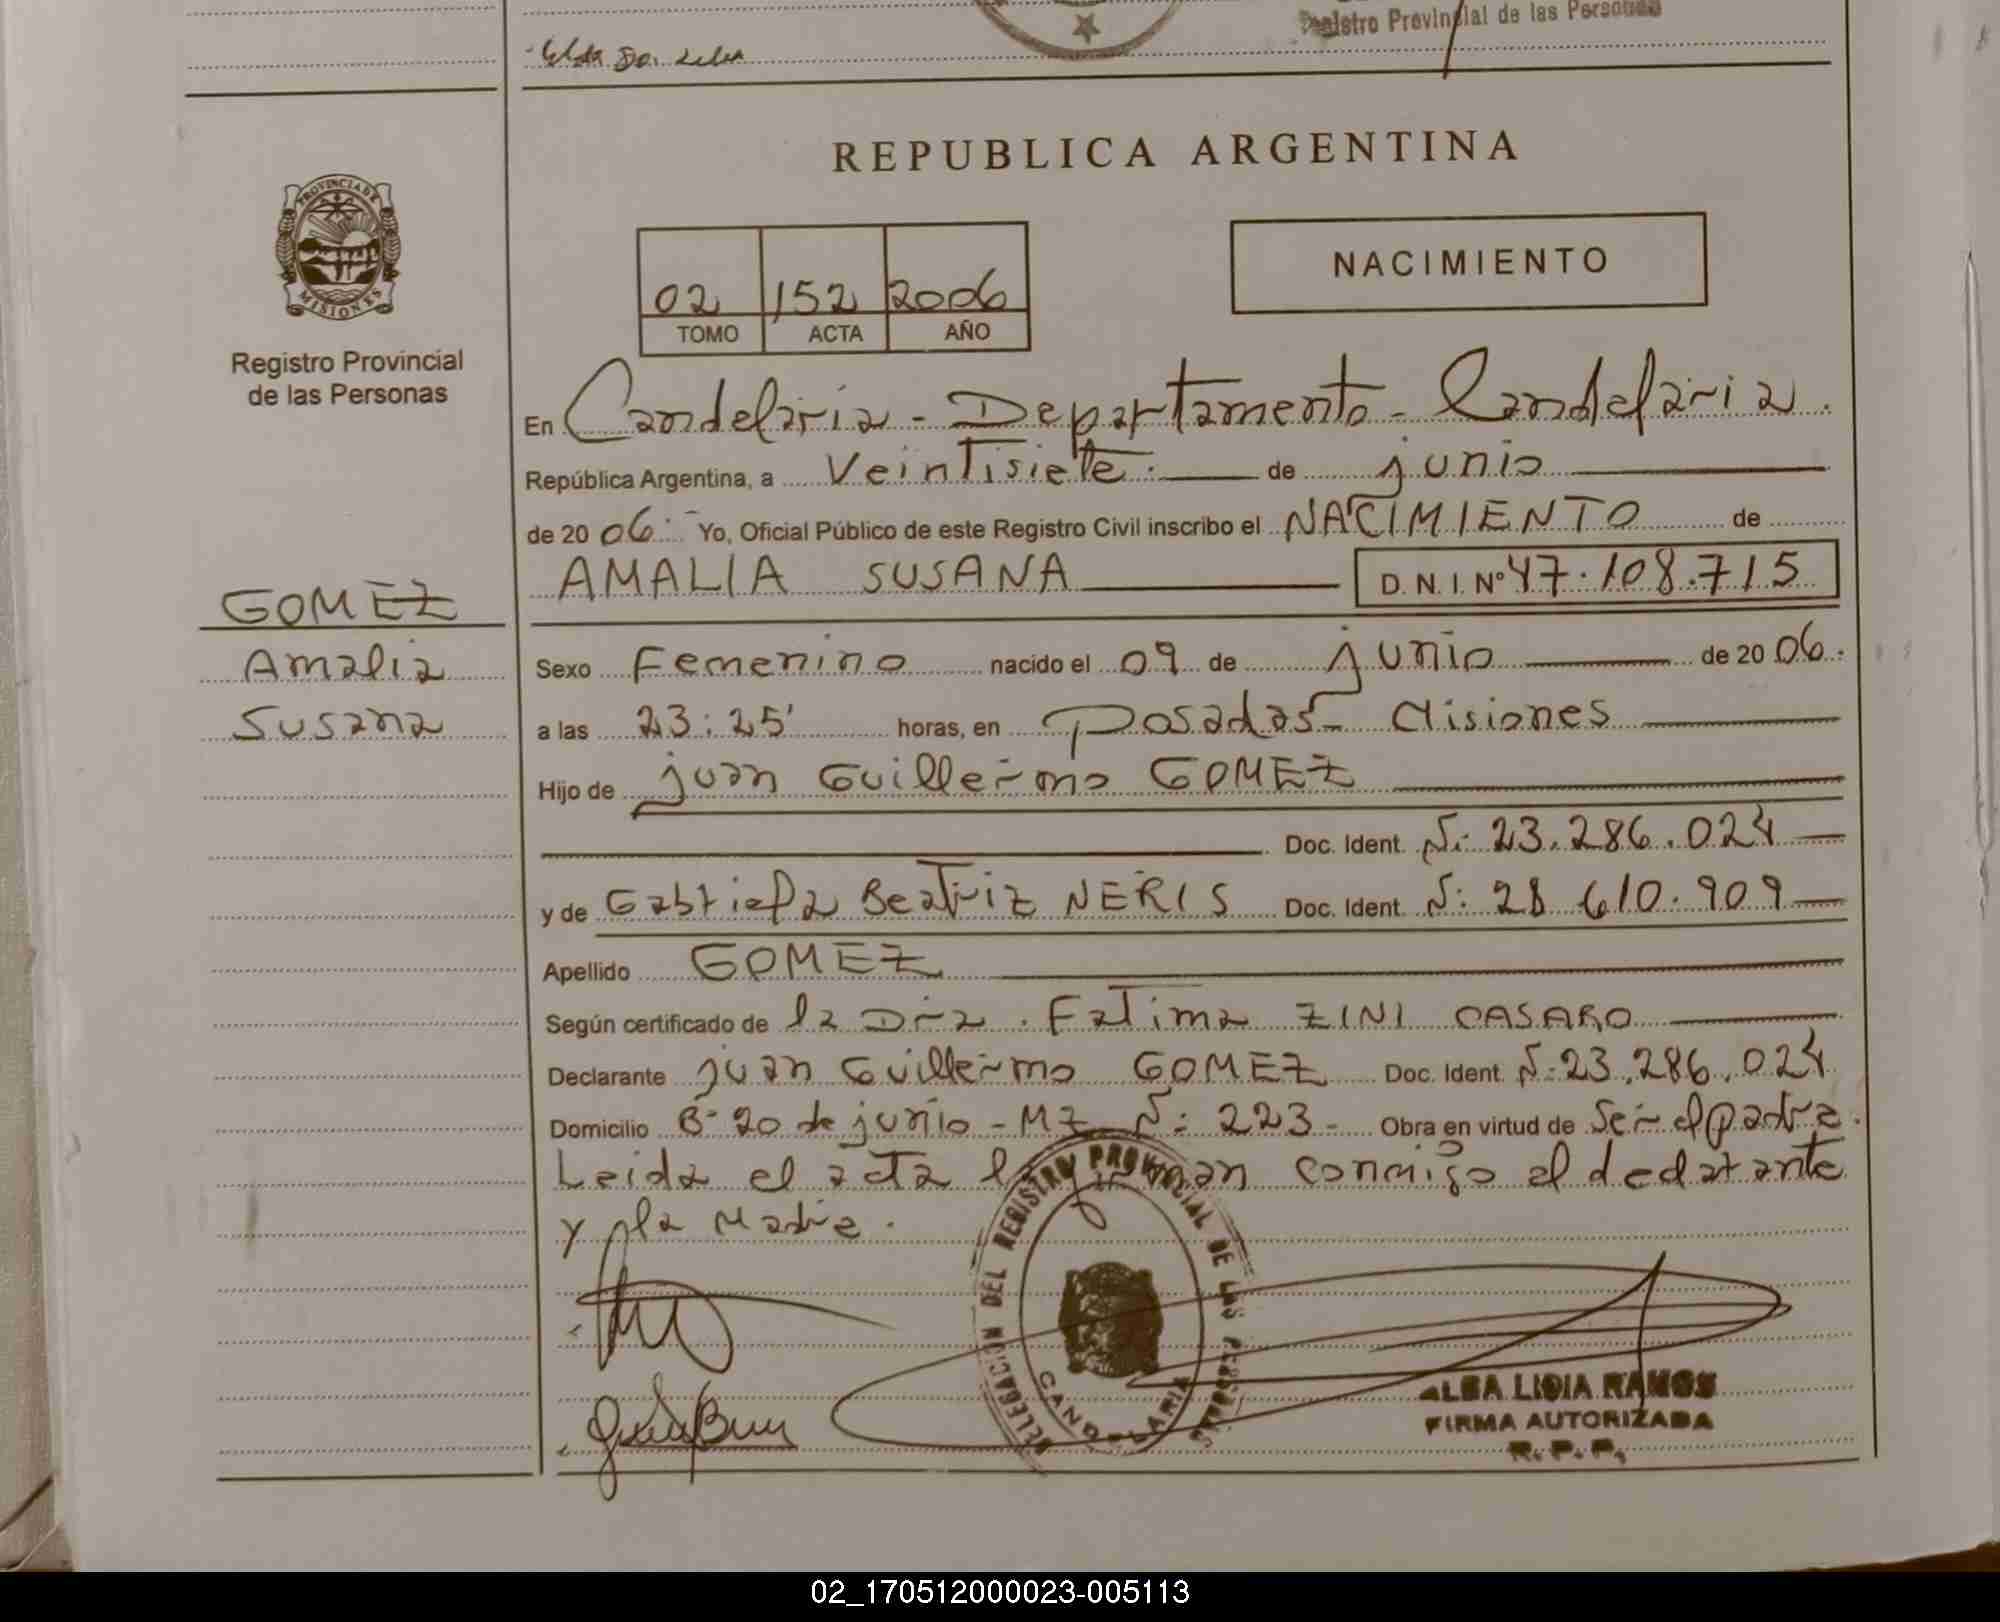 Registro Provincial de las Personas
REPUBLICA ARGENTINA
PROVINCIA DE
MISIONES
Registro Provincial
de las Personas
02 152 2006
TOMO ACTA AÑO
NACIMIENTO
En Candelaria - Departamento - Candelaria.
República Argentina, a Veintisiete. de junio
de 20 06. Yo, Oficial Público de este Registro Civil inscribo el NACIMIENTO de
AMALIA SUSANA D.N.I. Nº 47.108.715
GOMEZ
Amalia
Susana
Sexo Femenino nacido el 09 de junio de 20 06.
a las 23:25' horas, en Posadas - Misiones
Hijo de Juan Guillermo GOMEZ
Doc. Ident. N: 23.286.024
y de Gabriela Beatriz NERIS Doc. Ident. N: 28 610.909
Apellido GOMEZ
Según certificado de la Dra. Fatima ZINI CASARO
Declarante Juan Guillermo GOMEZ Doc. Ident. N: 23.286.024
Domicilio B- 20 de junio - MZ N: 223 - Obra en virtud de Ser el padre.
Leida el acta la firman conmigo el declarante
y la Madre.
DELEGACION DEL REGISTRO PROVINCIAL DE LAS PERSONAS
CANDELARIA
ALBA LIDIA RAMOS
FIRMA AUTORIZADA
R. P. P.
02_170512000023-005113